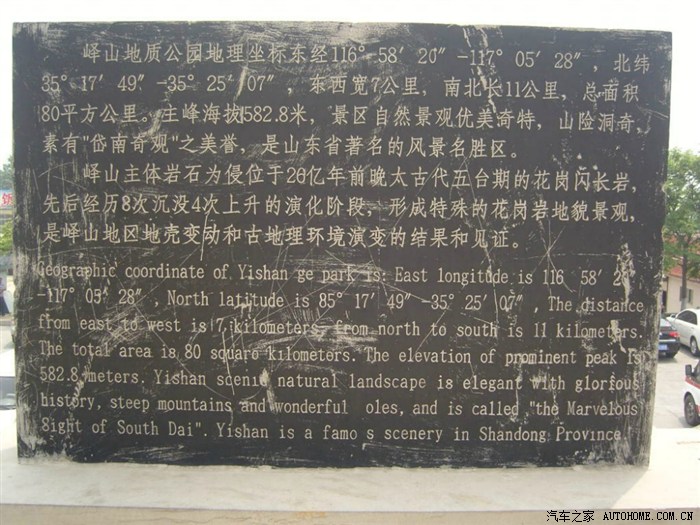 峄山地质公园地理坐标东经116°58′20″-117°05′28″，北纬
35°17′49″-35°25′07″，东西宽7公里，南北长11公里，总面积
80平方公里。主峰海拔582.8米，景区自然景观优美奇特，山险洞奇，
素有"岱南奇观"之美誉，是山东省著名的风景名胜区。
峄山主体岩石为侵位于26亿年前晚太古代五台期的花岗闪长岩，
先后经历8次沉没4次上升的演化阶段，形成特殊的花岗岩地貌景观，
是峄山地区地壳变动和古地理环境演变的结果和见证。
Geographic coordinate of Yishan ge park is: East longitude is 116 58′ 2
-117° 05′ 28″ , North latitude is 85° 17′ 49″ -35° 25′ 07″ , The distance
from east to west is 7 kilometers, from north to south is 11 kilometers.
The total area is 80 square kilometers. The elevation of prominent peak is
582.8 meters. Yishan scenic natural landscape is elegant with glorious
history, steep mountains and wonderful oles, and is called "the Marvelous
Sight of South Dai". Yishan is a famo s scenery in Shandong Province.
汽车之家 AUTOHOME.COM.CN